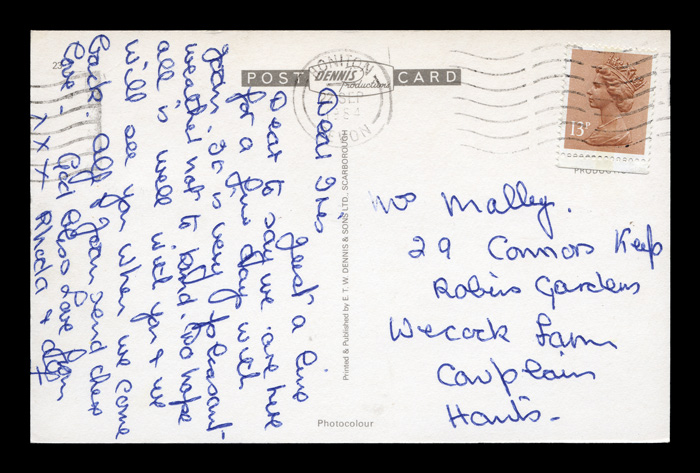 POST CARD
DENNIS
Productions
HONITON
SEP
DEVON
13P
Dear Ines
Just a line
Dear to say we are here
for a few days with
Joan. It is very pleasant-
weather not to kind. Do hope
all is well with you & we
will see you when we come
back. Alf & Joan send their
love - God Bless Love from
x x x Rhoda &
Printed & Published by E. T. W. DENNIS & SONS LTD., SCARBOROUGH
Photocolour
Mrs Malley.
29 Connors Keep
Robins Gardens
Wecock Farm
Cowplain
Hants-